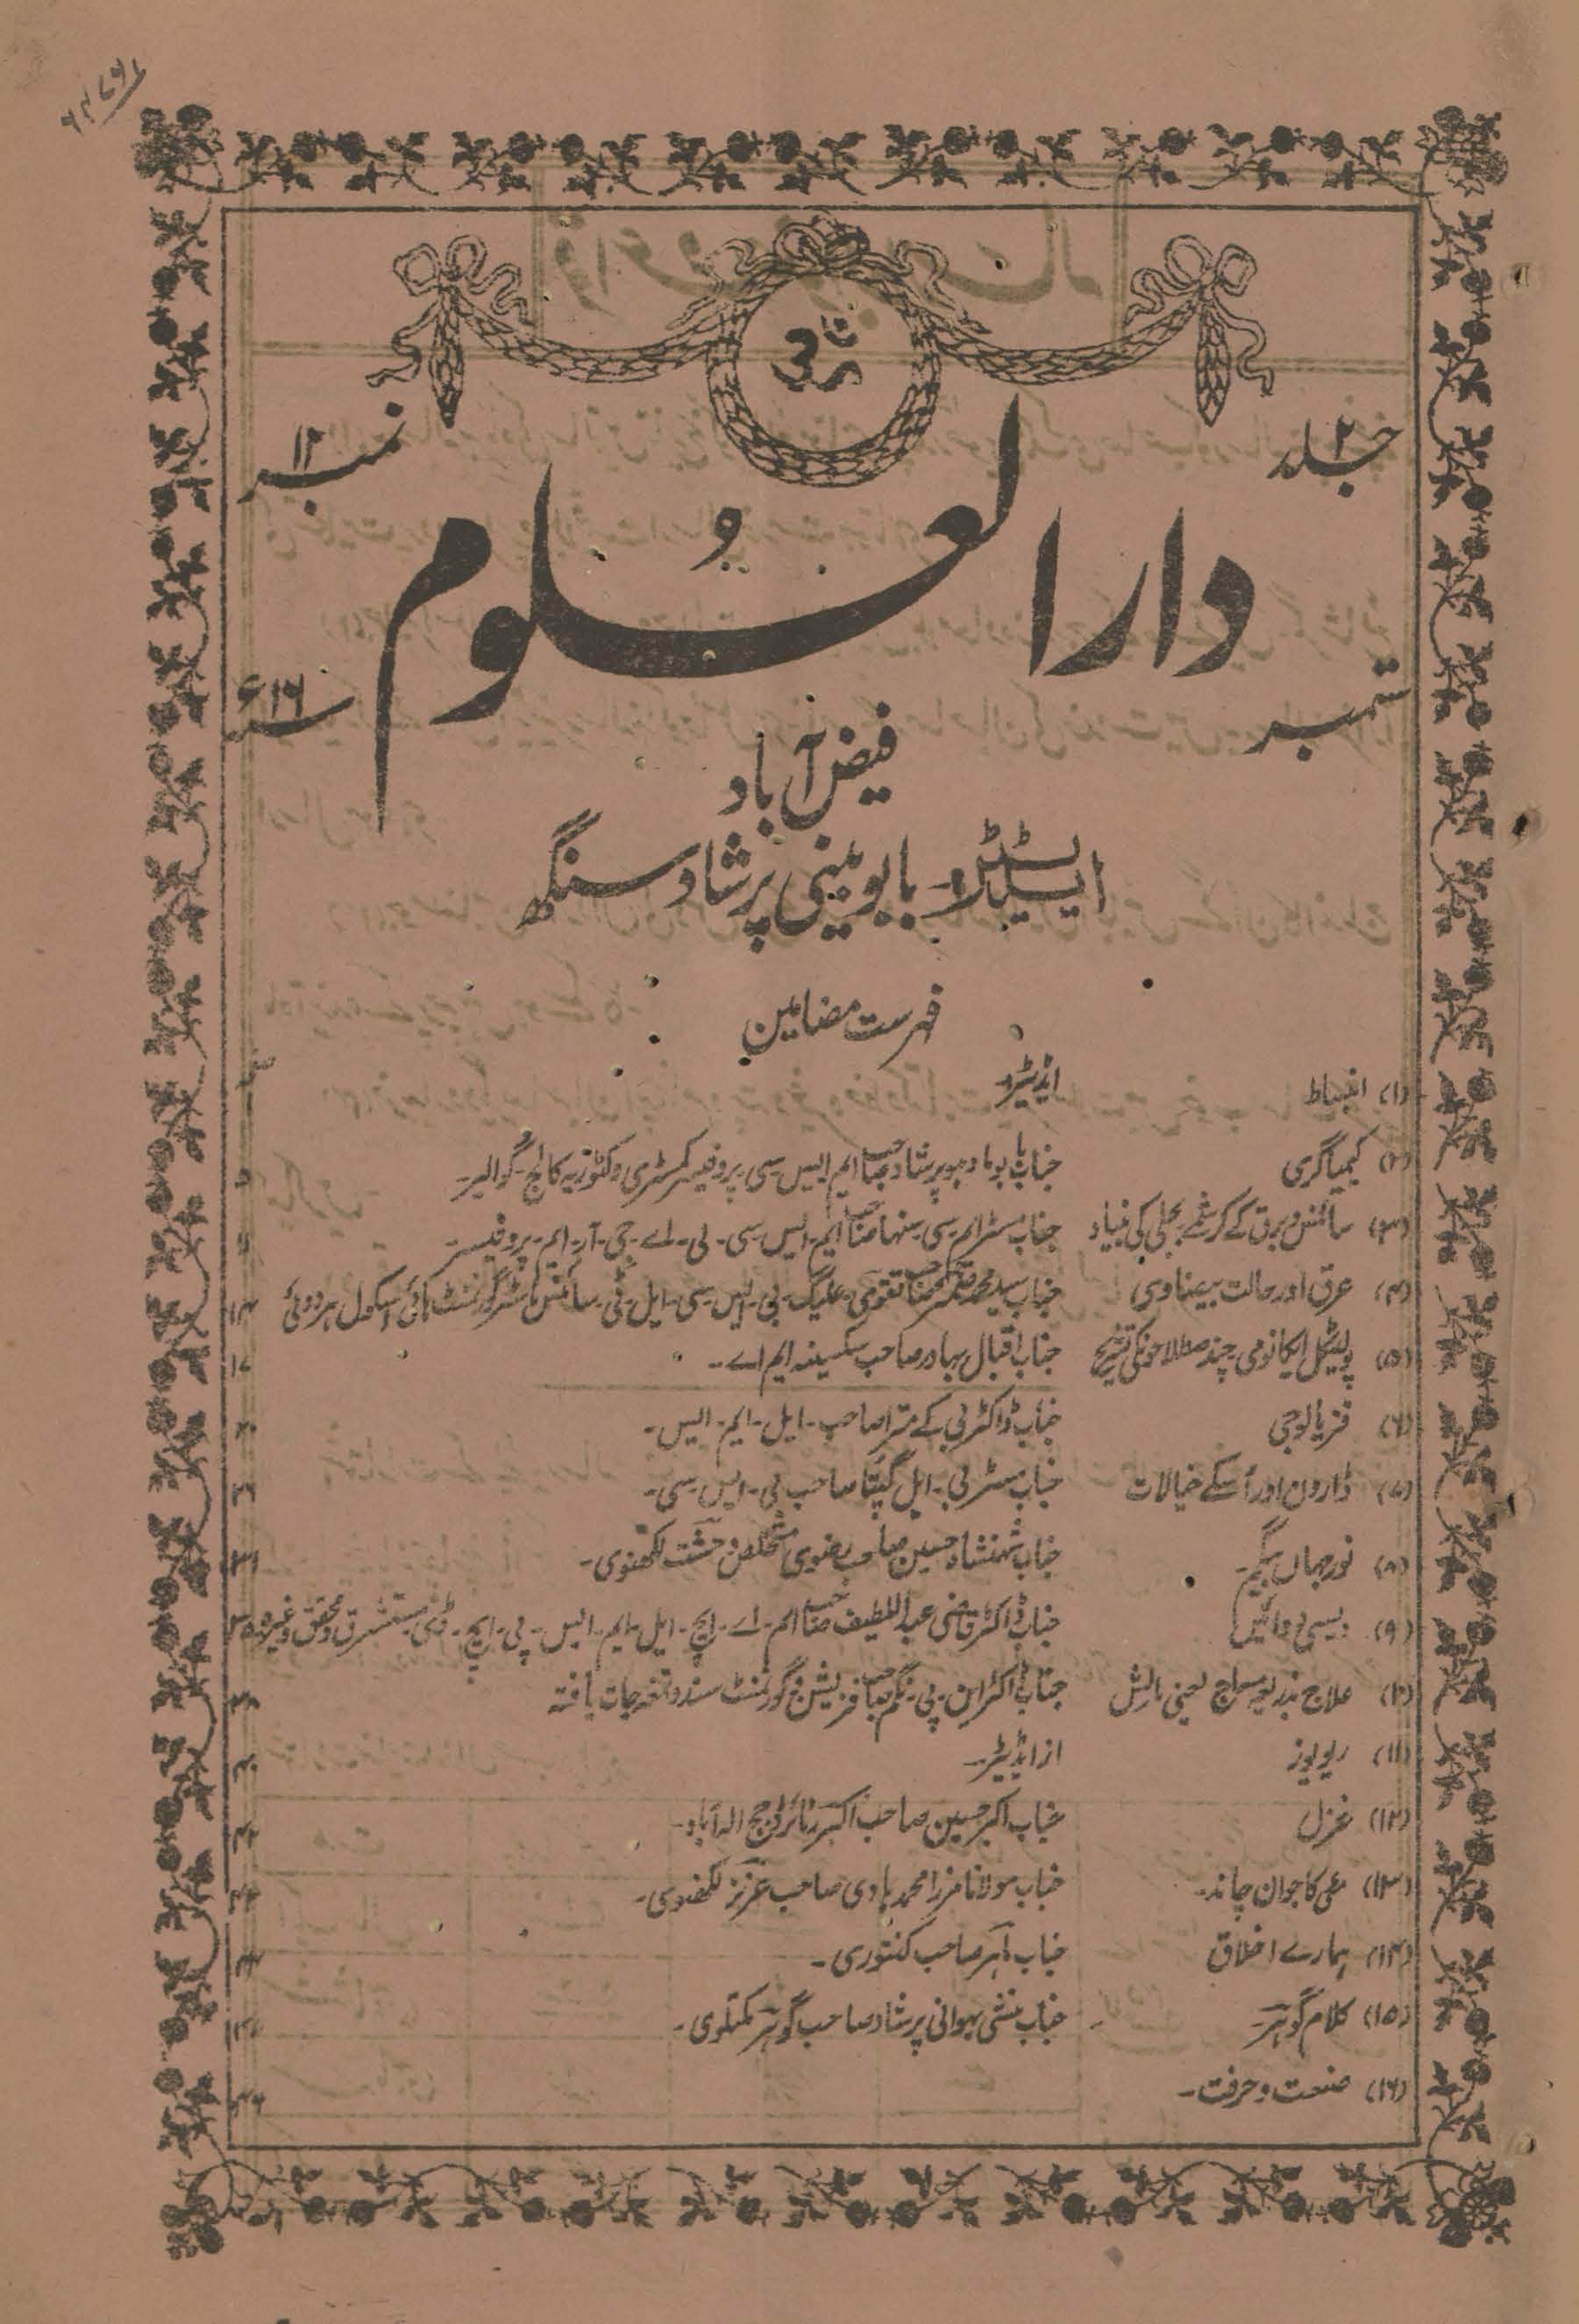 جلد ۲
نمبر ۱۲
دارالعلوم
ستمبر
سنہ ۱۶ء
فیض آباد
ایڈیٹر۔ بابو بینی پرشاد سنگھ
فہرست مضامین
(۱) انبساط ایڈیٹر ۱
(۲) کیمیاگری جناب بابو مادھو پرشاد صاحب ایم ایس سی پروفیسر کمسٹری وکٹوریہ کالج۔ گوالیر۔
(۳) سائنس و برق کے کرشمے بجلی کی بنیاد جناب مسٹر ایم۔ سی۔ سنہا صاحب ایم۔ ایس سی۔ بی۔ اے۔ جی۔ آر۔ ایم۔ پروفیسر۔
(۴) عرق اور حالت بیضاوی جناب سید محمد صاحب نقوی۔ علیگ۔ بی۔ ایس۔ سی۔ ایل۔ ٹی۔ سائنس ماسٹر گورنمنٹ ہائی اسکول ہردوئی ۱۴
(۵) پولیٹیکل ایکانومی۔ چند مصطلاحونکی تشریح جناب اقبال بہادر صاحب سکسینہ ایم اے۔ ۱۷
(۶) فزیالوجی جناب ڈاکٹر بی کے مترا صاحب۔ ایل۔ ایم۔ ایس۔ ۲۰
(۷) ڈارون اور اُسکے خیالات جناب مسٹر بی۔ ایل گپتا صاحب بی۔ ایس۔ سی۔
(۸) نورجہاں بیگم۔ جناب شہنشاہ حسین صاحب رضوی متخلص وحشت لکھنوی۔ ۳۱
(۹) دیسی دوائیں جناب ڈاکٹر قاضی عبداللطیف صاحب ایم۔ اے۔ ایچ۔ ایل۔ ایم۔ ایس۔ پی۔ ایچ۔ ڈی مستشرق و محقق وغیرہ
(۱۰) علاج بذریعہ مساج یعنی مالش جناب ڈاکٹر این۔ پی۔ نگم صاحب فزیشن گورنمنٹ سند و تمغہ جات یافتہ
(۱۱) ریویوز از ایڈیٹر۔ ۴۰
(۱۲) غزل جناب اکبر حسین صاحب اکبر رٹائرڈ جج الہ آباد۔
(۱۳) کا جوان چاند۔ جناب مولانا مرزا محمد ہادی صاحب عزیز لکھنوی۔
(۱۴) ہمارے اخلاق جناب صاحب کنتوری۔
(۱۵) کلام گوہر۔ جناب منشی بہوانی پرشاد صاحب گوہر
(۱۶) صنعت و حرفت۔